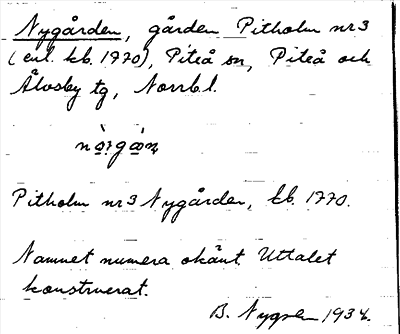 Nygården, gården Pitholm nr 3
(enl. kb. 1770), Piteå sn, Piteå och
Älvsby tg, Norrb. l.
Pitholm nr 3 Nygården, kb. 1770.
Namnet numera okänt. Uttalet
konstruerat.
B. Nygren 1934.